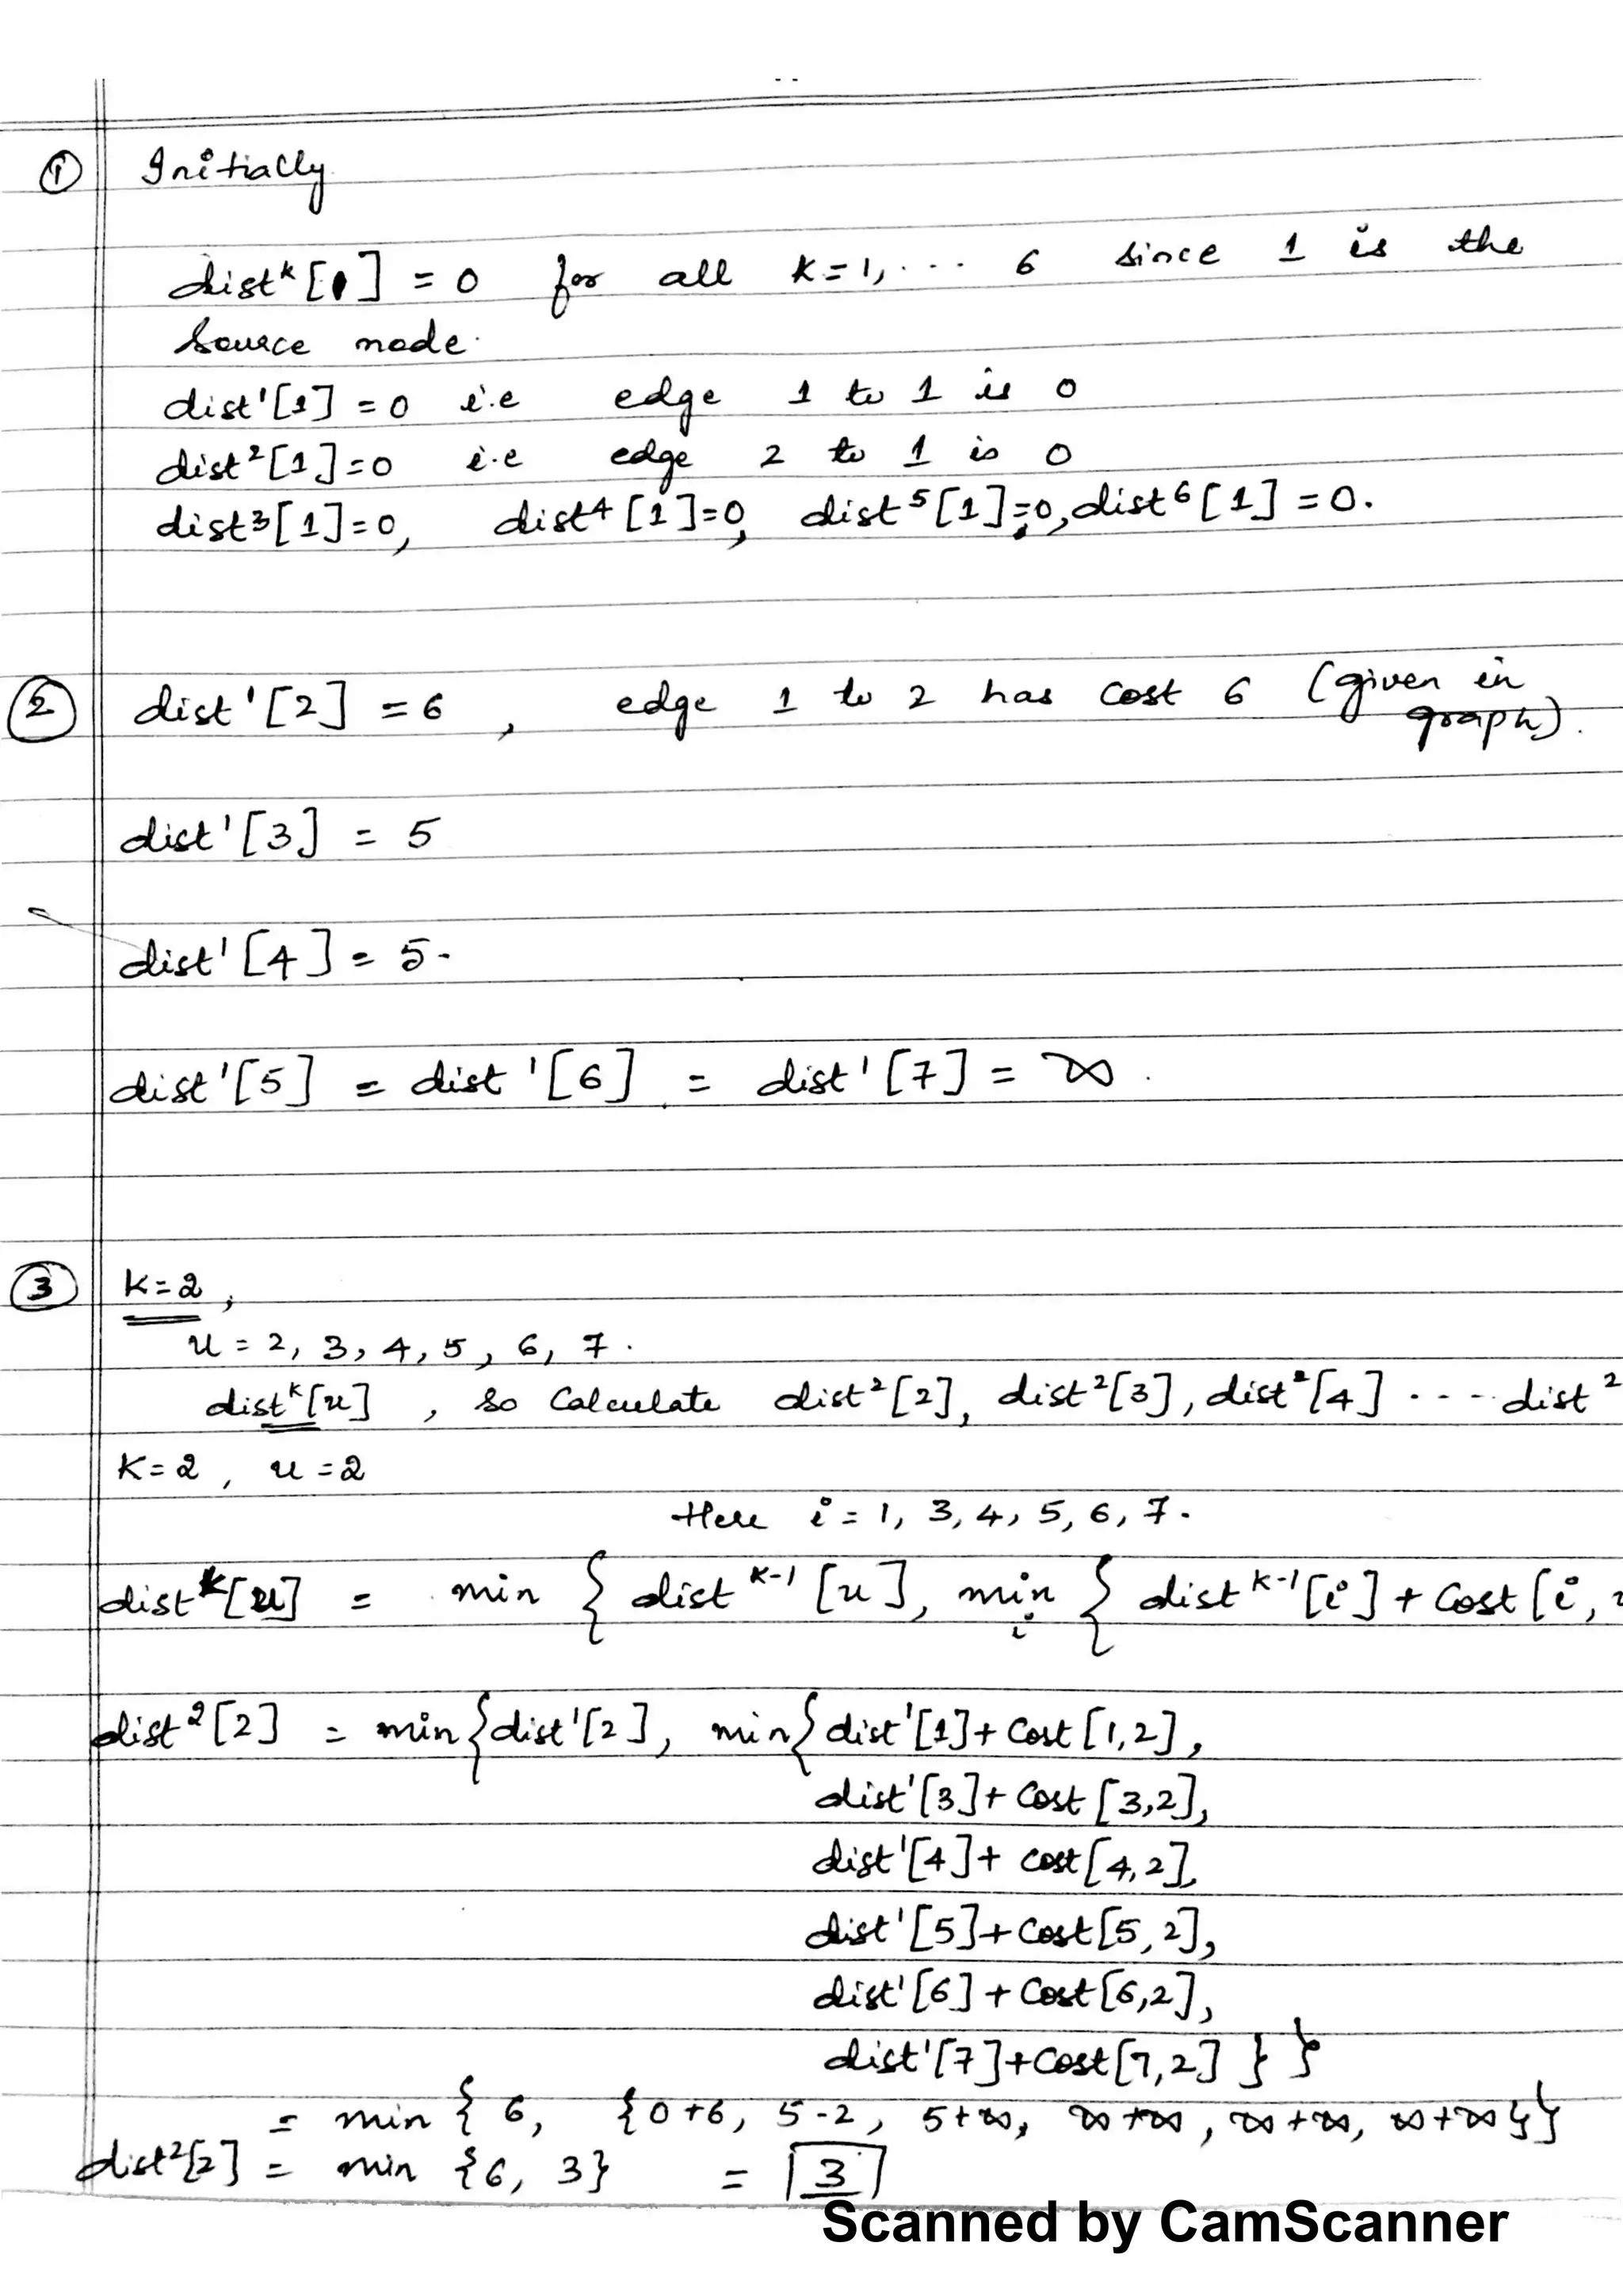 ① Initially
distᵏ[1] = 0 for all K=1, ... 6 since 1 is the
source node.
dist¹[1] = 0 i.e edge 1 to 1 is 0
dist²[1] = 0 i.e edge 2 to 1 is 0
dist³[1]=0, dist⁴[1]=0, dist⁵[1]=0, dist⁶[1] = 0.
② dist¹[2] = 6, edge 1 to 2 has cost 6 (given in
graph).
dist¹[3] = 5
dist¹[4] = 5.
dist¹[5] = dist¹[6] = dist¹[7] = ∞.
③ K=2,
u = 2, 3, 4, 5, 6, 7.
distᵏ[u], so Calculate dist²[2], dist²[3], dist²[4] .... dist²
K=2, u=2
Here i = 1, 3, 4, 5, 6, 7.
distᵏ[u] = min { distᵏ⁻¹[u], min i { distᵏ⁻¹[i] + Cost[i,
dist²[2] = min{dist¹[2], min{dist¹[1]+Cost[1,2],
dist¹[3]+Cost[3,2],
dist¹[4]+ cost[4,2],
dist¹[5]+Cost[5,2],
dist¹[6]+Cost[6,2],
dist¹[7]+Cost[7,2] } }
= min { 6, {0+6, 5-2, 5+∞, ∞+∞, ∞+∞, ∞+∞}}
dist²[2] = min {6, 3} = 3
Scanned by CamScanner